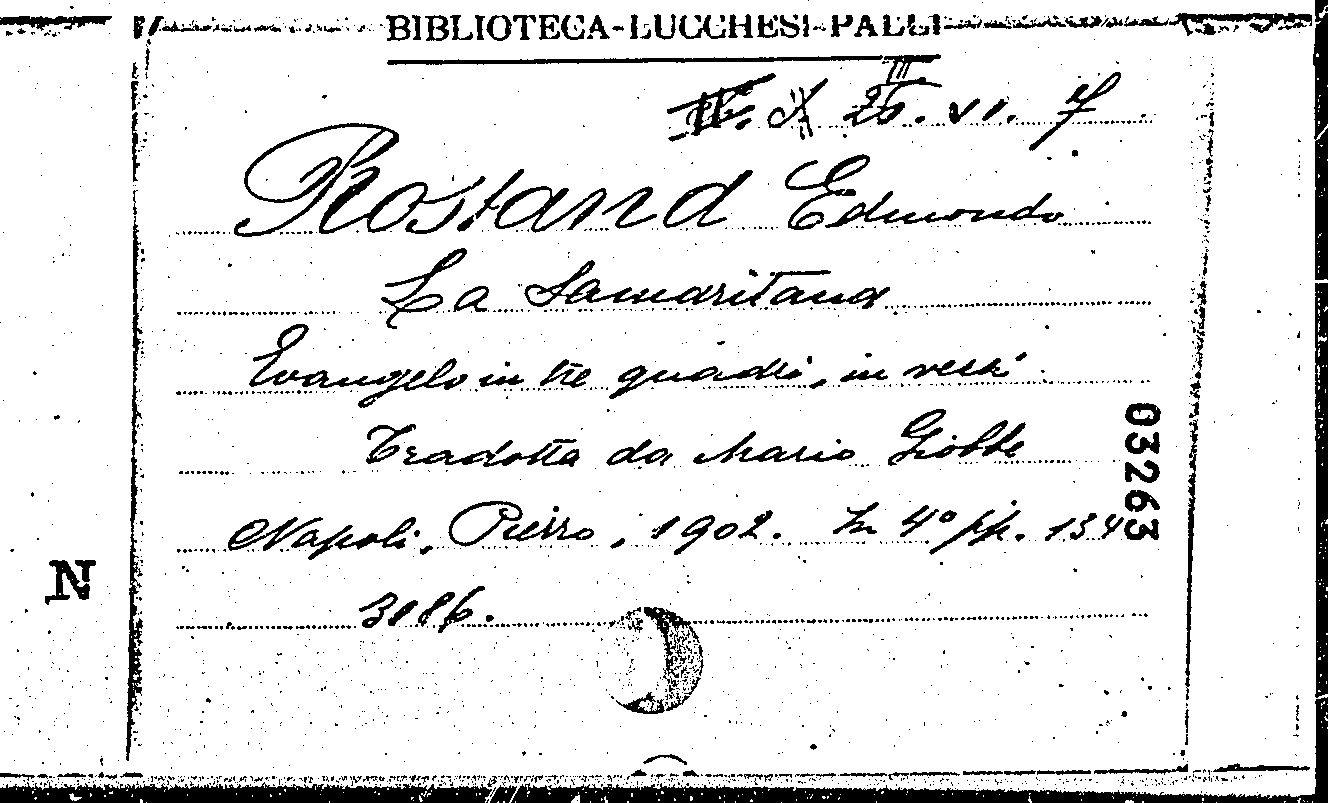 BIBLIOTECA-LUCCHESI-PALLI
VI. 7
Rostand Edmondo
La Samaritana
Evangelo in tre quadri, in versi
Tradotta da Mario Giobbe
03263
Napoli, Pierro, 1902. In 4º pp. 134
N
3186.